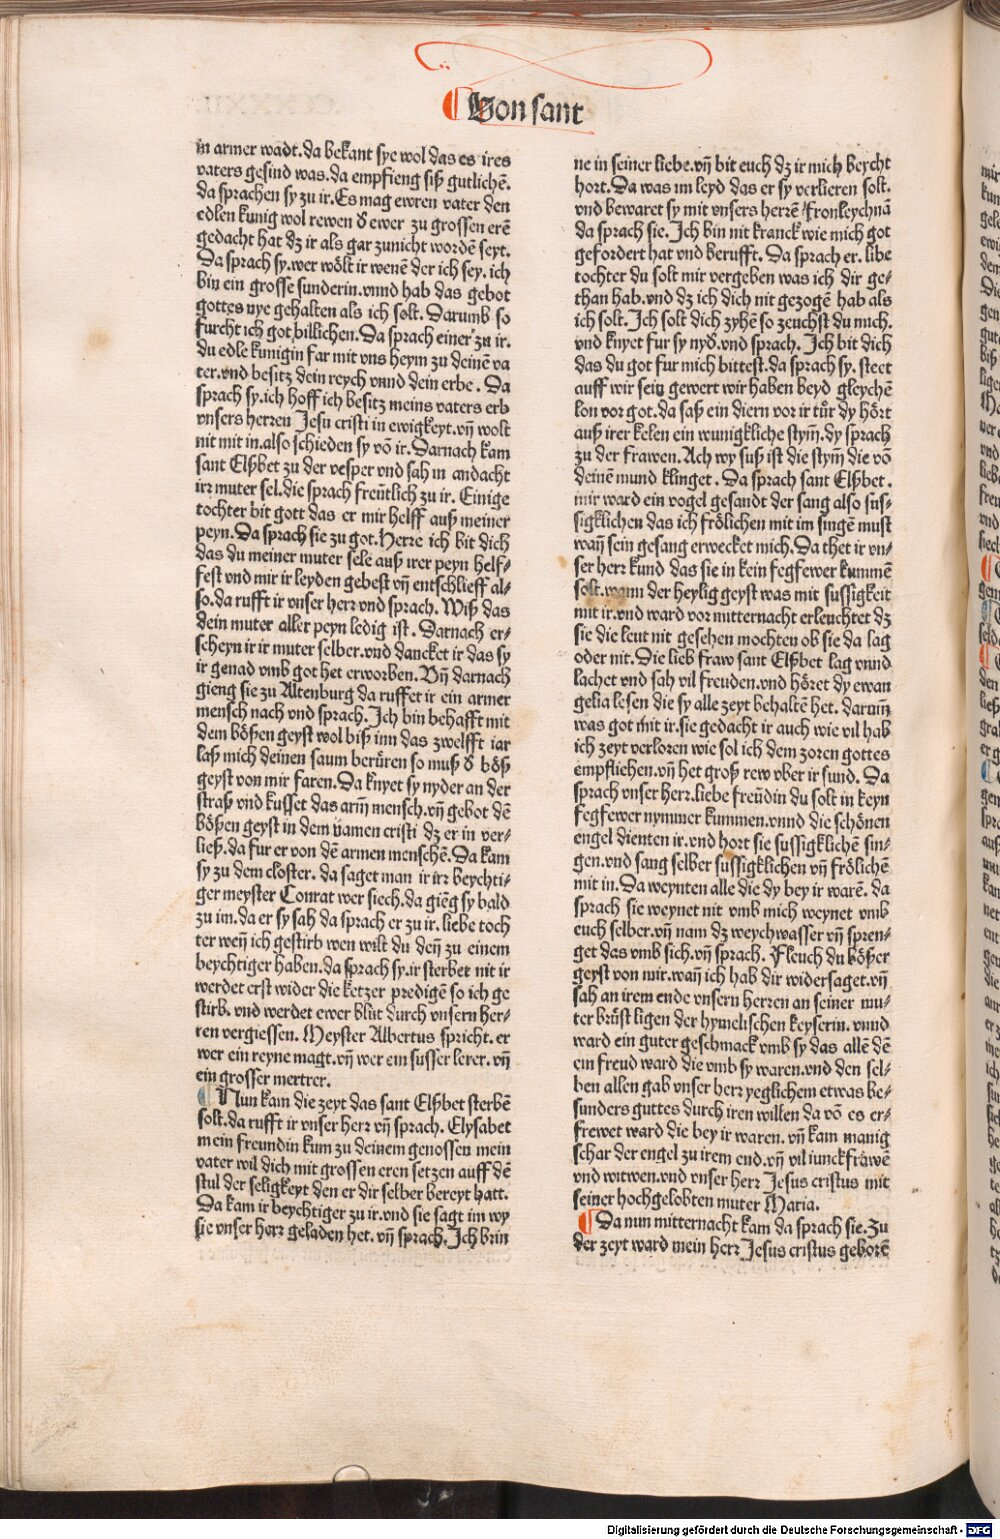 Von sant
in armer wadt.da bekant sye wol das es ires
vaters gesind was.da empfieng siß gutlichē.
da sprachen sy zu ir.Es mag ewren vater den
edlen kunig wol rewen ď ewer zu grossen erē
gedacht hat dz ir als gar zunicht wordē seyt.
Da sprach sy.wer wölt ir wenē der ich sey. ich
bin ein grosse sunderin.vnnd hab das gebot
gottes nye gehalten als ich solt. Darumb so
furcht ich got billichen.Da sprach einer zu ir.
du edle kunigin far mit vns heym zu deinē va
ter.vnd besitz dein reych vnnd dein erbe. Da
sprach sy.ich hoff ich besitz meins vaters erb
vnsers herren Jesu cristi in ewigkeyt.vn̄ wolt
nit mit in.also schieden sy vō ir. Darnach kam
sant Elßbet zu der vesper vnd sah in andacht
irr muter sel.die sprach freūtlich zu ir. Einige
tochter bit gott das er mir helff auß meiner
peyn.Da sprach sie zu got.Herre ich bit dich
das du meiner muter sele auß irer peyn helf⸗
fest vnd mir ir leyden gebest vn̄ entschlieff al⸗
so.da rufft ir vnser herr vnd sprach. Wiß das
dein muter aller peyn ledig ist. Darnach er⸗
scheyn ir ir muter selber.vnd dancket ir das sy
ir genad vmb got het erworben. Vn̄ darnach
gieng sie zu Altenburg da ruffet ir ein armer
mensch nach vnd sprach.Ich bin behafft mit
dem bößen geyst wol biß inn das zwelfft iar
laß mich deinen saum berüren so muß ď böß
geyst von mir faren.Da knyet sy nyder an der
straß vnd kusset das arm̄ mensch.vn̄ gebot dē
bößen geyst in dem namen cristi dz er in ver⸗
ließ.da fur er von dē armen menschē.Da kam
sy zu dem closter. da saget man ir irr beychti⸗
ger meyster Conrat wer siech.da giēg sy bald
zu im.da er sy sah da sprach er zu ir.liebe toch
ter wen̄ ich gestirb wen wilt du den̄ zu einem
beychtiger haben.da sprach sy.ir sterbet nit ir
werdet erst wider die ketzer predigē so ich ge
stirb.vnd werdet ewer blut durch vnsern her⸗
ren vergiessen. Meyster Albertus spricht. er
wer ein reyne magt.vn̄ wer ein susser lerer.vn̄
ein grosser mertrer.
Nun kam die zeyt das sant Elßbet sterbē
solt.da rufft ir vnser herr vn̄ sprach. Elysabet
mein freundin kum zu deinem genossen mein
vater wil dich mit grossen eren setzen auff dē
stul der seligkeyt den er dir selber bereyt hatt.
Da kam ir beychtiger zu ir.vnd sie sagt im wy
sie vnser herr geladen het. vn̄ sprach.Ich brin
ne in seiner liebe.vn̄ bit euch dz ir mich beycht
hort.Da was im leyd das er sy verlieren solt.
vnd bewaret sy mit vnsers herrē Fronleychnā
da sprach sie. Ich bin nit kranck wie mich got
gefordert hat vnd berufft. Da sprach er. libe
tochter du solt mir vergeben was ich dir ge⸗
than hab.vnd dz ich dich nit gezogē hab als
ich solt.Ich solt dich zyhē so zeuchst du mich.
vnd knyet fur sy nyď.vnd sprach. Ich bit dich
das du got fur mich bittest.da sprach sy. steet
auff wir sein gewert wir haben beyd gleychē
lon vor got.da saß ein diern vor ir tür dy hört
auß irer kelen ein wunigkliche stym̄.dy sprach
zu der frawen.Ach wy suß ist die stym̄ die vō
deinē mund klinget. Da sprach sant Elßbet.
mir ward ein vogel gesandt der sang also sus⸗
sigklichen das ich frölichen mit im singē must
wan̄ sein gesang erwecket mich.Da thet ir vn⸗
ser herr kund das sie in kein fegfewer kummē
solt.wann der heylig geyst was mit sussigkeit
mit ir.vnd ward vor mitternacht erleuchtet dz
sie die leut nit gesehen mochten ob sie da lag
oder nit.Die lieb fraw sant Elßbet lag vnnd
lachet vnd sah vil freuden.vnd höret dy ewan
gelia lesen die sy alle zeyt behaltē het. darum̄
was got mit ir.sie gedacht ir auch wie vil hab
ich zeyt verloren wie sol ich dem zoren gottes
empfliehen.vn̄ het groß rew vber ir sund. Da
sprach vnser herr.liebe freūdin du solt in keyn
fegfewer nymmer kummen.vnnd die schönen
engel dienten ir.vnd hort sie sussigklichē sin⸗
gen.vnd sang selber sussigklichen vn̄ frölichē
mit in.Da weynten alle die dy bey ir warē. da
sprach sie weynet nit vmb mich weynet vmb
euch selber.vn̄ nam dz weychwasser vn̄ spren⸗
get das vmb sich.vn̄ sprach. Fleuch du bößer
geyst von mir.wan̄ ich hab dir widersaget.vn̄
sah an irem ende vnsern herren an seiner mu⸗
ter brüst ligen der hymelischen keyserin. vnnd
ward ein guter geschmack vmb sy das allē dē
ein freud ward die vmb sy waren.vnd den sel⸗
ben allen gab vnser herr yeglichem etwas be⸗
sunders guttes durch iren willen da vō es er⸗
frewet ward die bey ir waren. vn̄ kam manig
schar der engel zu irem end.vn̄ vil iunckfrawē
vnd witwen.vnd vnser herr Jesus cristus mit
seiner hochgelobten muter Maria.
Da nun mitternacht kam da sprach sie.Zu
der zeyt ward mein herr Jesus cristus geborē
Digitalisierung gefördert durch die Deutsche Forschungsgemeinschaft - DFG